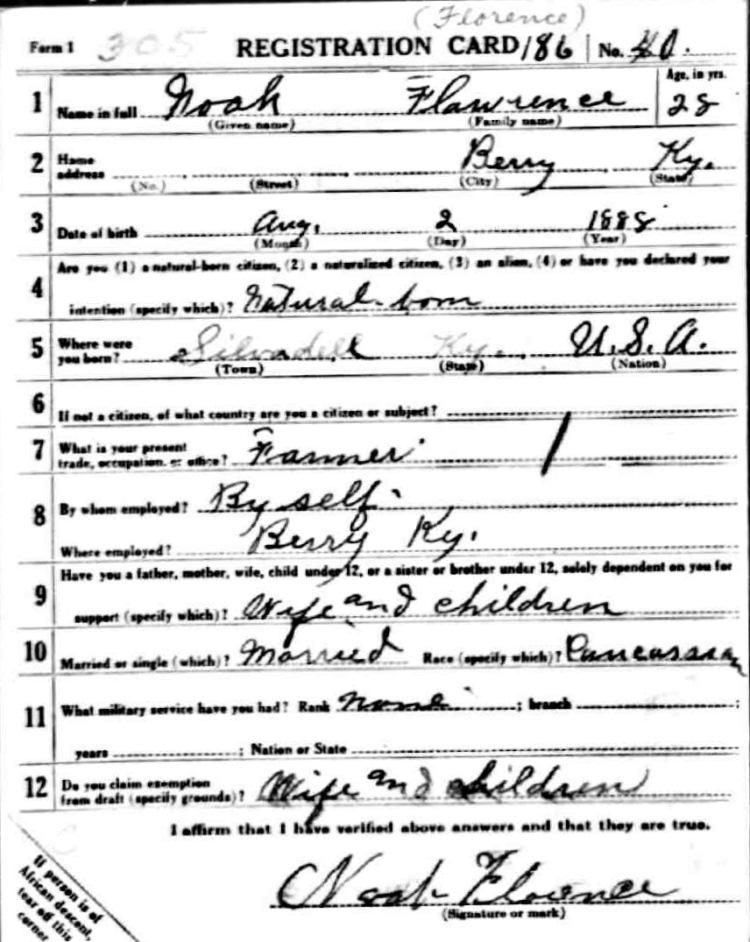 (Florence)
Form 1 305 REGISTRATION CARD 186 No. 40.
Age, in yrs.
1 Name in full Noah Flawrence 28
(Given name) (Family name)
2 Home address Berry Ky.
(No.) (Street) (City) (State)
3 Date of birth Aug. 2 1888
(Month) (Day) (Year)
4 Are you (1) a natural-born citizen, (2) a naturalized citizen, (3) an alien, (4) or have you declared your
intention (specify which)? Natural-born
5 Where were you born? Ky. U.S.A.
(Town) (State) (Nation)
6 If not a citizen, of what country are you a citizen or subject?
7 What is your present
trade, occupation, or office? Farmer
8 By whom employed? By self.
Where employed? Berry Ky.
9 Have you a father, mother, wife, child under 12, or a sister or brother under 12, solely dependent on you for
support (specify which)? Wife and children
10 Married or single (which)? Married Race (specify which)? Caucassian
11 What military service have you had? Rank None ; branch ;
years ; Nation or State
12 Do you claim exemption
from draft (specify grounds)? Wife and children
I affirm that I have verified above answers and that they are true.
Noah Florence
(Signature or mark)
If person is of
African descent,
tear off this
corner